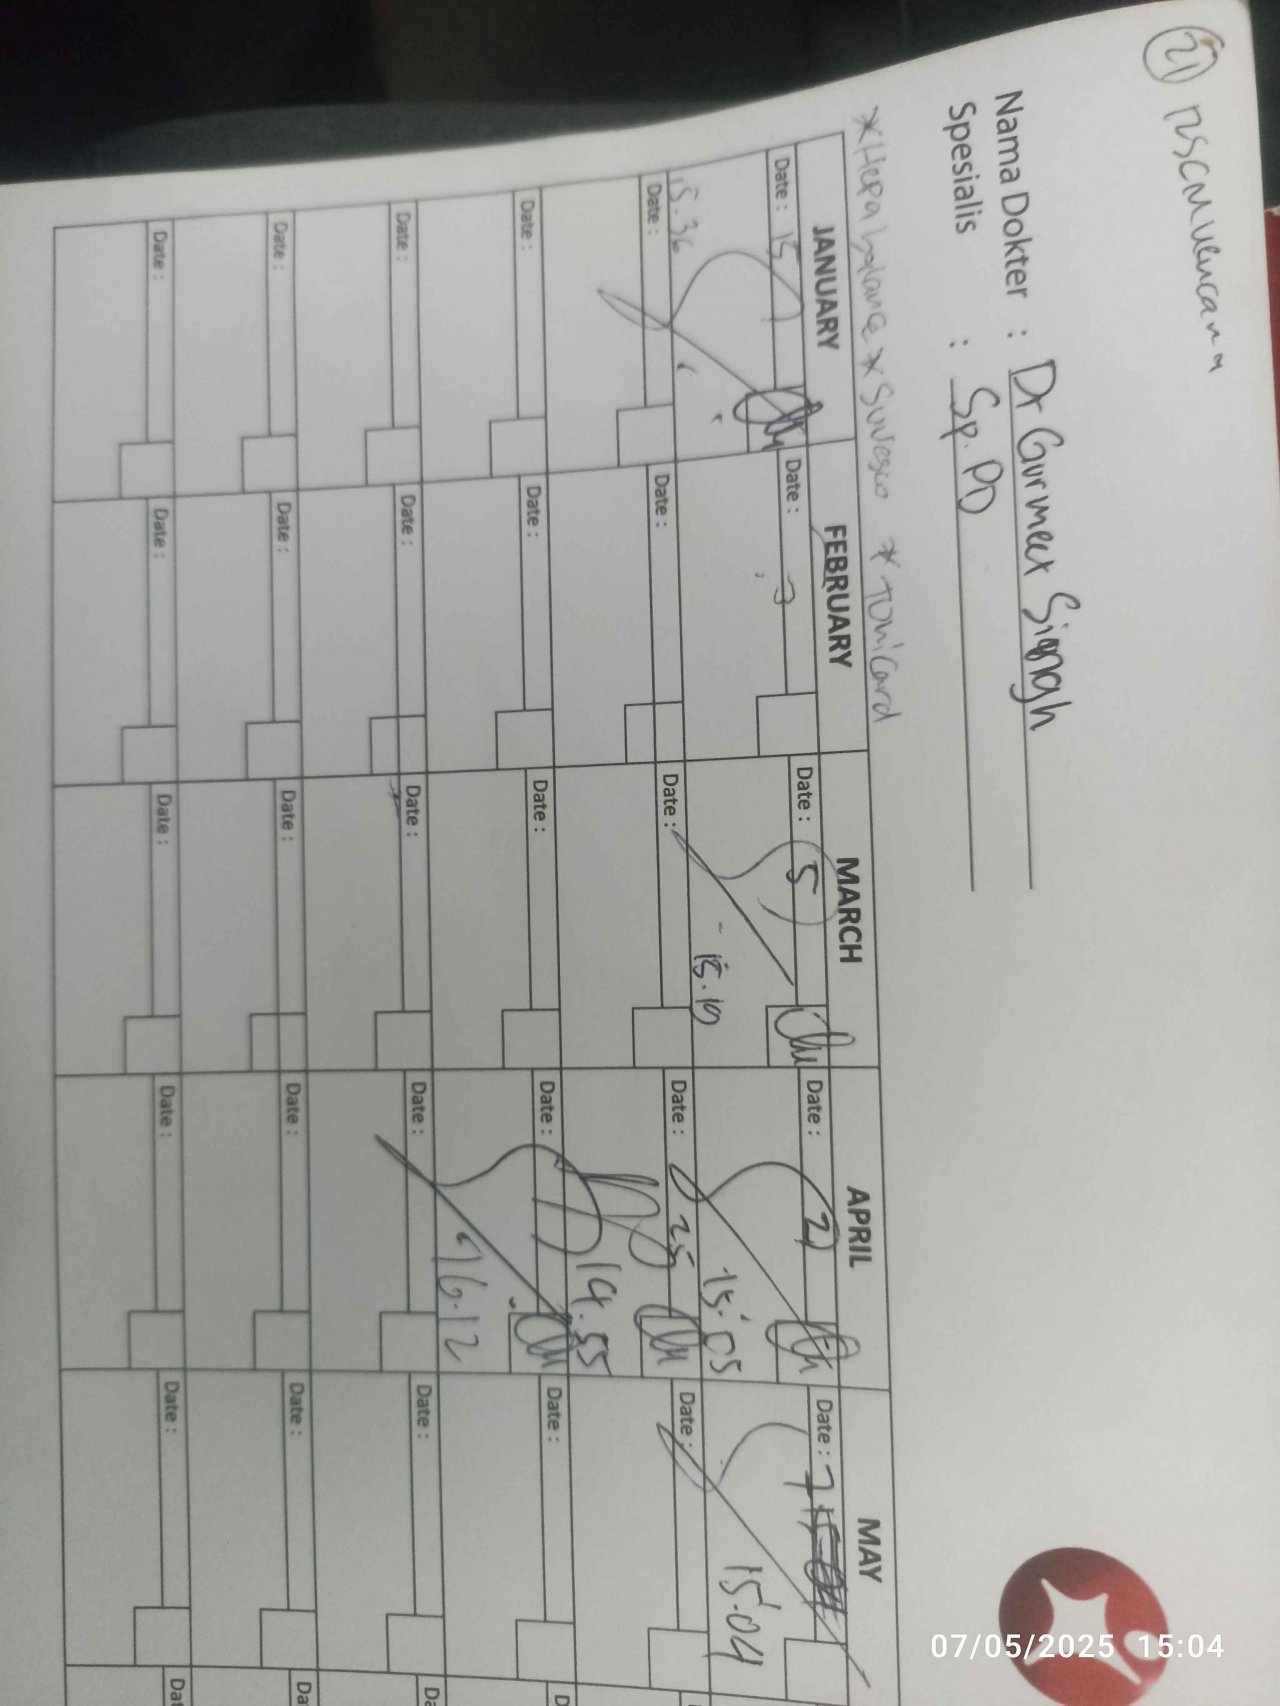 21
Nama Dokter : Dr Gurmeet Singh
Spesialis : Sp. PD
*Hepa balance * Suvesco * Tonicard
JANUARY FEBRUARY MARCH APRIL MAY
Date : 15 Date : Date : 5 Date : 2 Date : 7
15.36 15.19 15.05 15.04
Date : Date : Date : Date : 25 Date :
14.55
Date : Date : Date : Date : Date :
16.12
Date : Date : Date : Date : Date :
Date : Date : Date : Date : Date :
Date : Date : Date : Date : Date :
07/05/2025 15:04